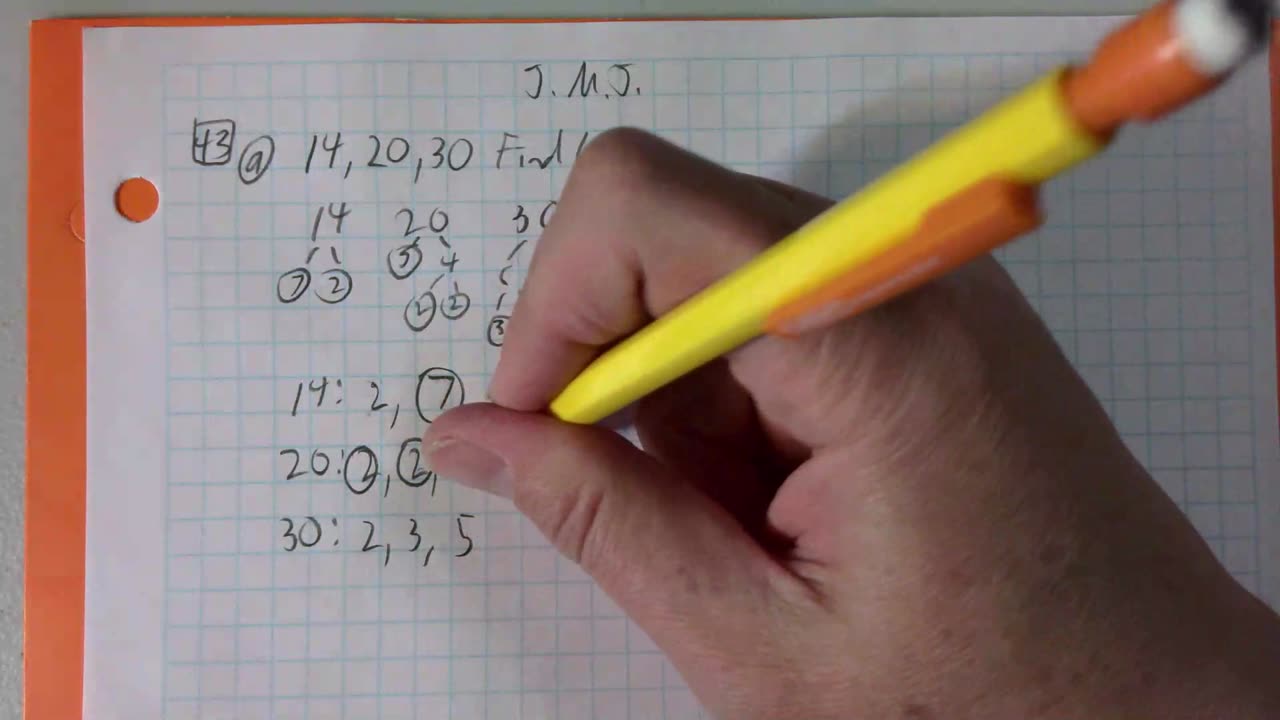 J.M.J.
43 a 14, 20, 30 Find
14 20 30
7 2 5 4
2 2 3
14: 2, 7
20: 2, 2,
30: 2, 3, 5